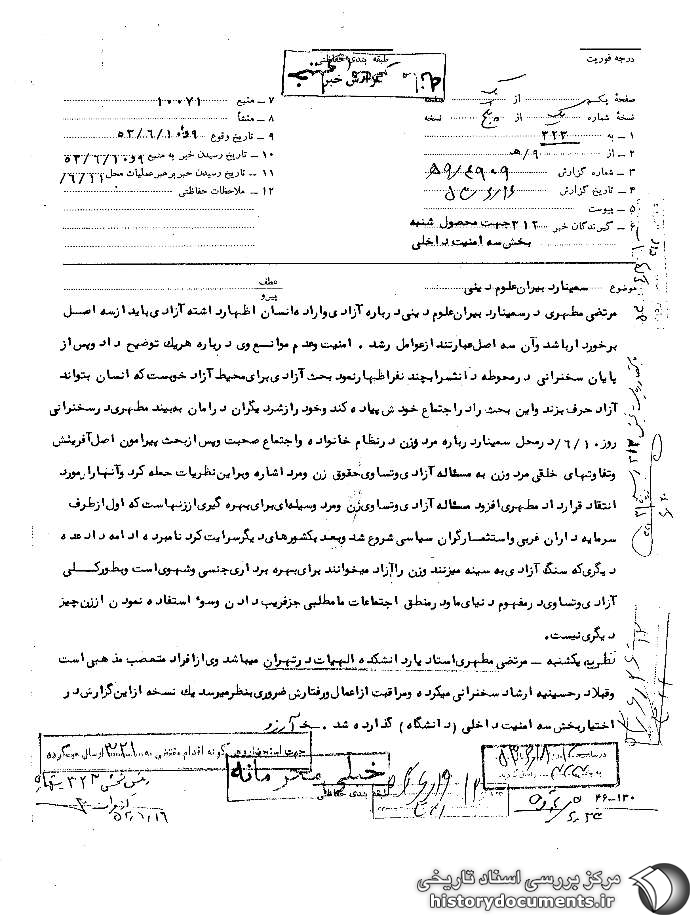 درجه فوریت
طبقه بندی حفاظتی
گزارش خبر
صفحهٔ یکم از یک صفحه
نسخهٔ شماره از پنج نسخه
۱ ـ به ۳۲۳
۲ ـ از ۹/ه‍
۳ ـ شماره گزارش
۴ ـ تاریخ گزارش
۵ ـ پیوست
۶ ـ گیرندگان خبر ۳۱۲ جهت محصول شنبه
بخش سه امنیت داخلی
۷ ـ منبع ۱۰۰۷۱
۸ ـ منشأ
۹ ـ تاریخ وقوع ۹و۵۳/۶/۱۰
۱۰ ـ تاریخ رسیدن خبر به منبع ۹و۵۳/۶/۱۰
۱۱ ـ تاریخ رسیدن خبر برهبر عملیات محل ۶/۱۱/
۱۲ ـ ملاحظات حفاظتی
موضوع سمینار دبیران علوم دینی
عطف
پیرو
مرتضی مطهری در سمینار دبیران علوم دینی درباره آزادی و اراده انسان اظهار داشته آزادی باید از سه اصل
برخوردار باشد و آن سه اصل عبارتند از عوامل رشد . امنیت و عدم موانع وی درباره هریك توضیح داد و پس از
پایان سخنرانی در محوطه دانشسرا بچند نفر اظهار نمود بحث آزادی برای محیط آزاد خوبست که انسان بتواند
آزاد حرف بزند و این بحث را در اجتماع خودش پیاده کند و خود را از شر دیگران در امان به بیند مطهری در سخنرانی
روز ۶/۱۰/ در محل سمینار درباره مرد و زن در نظام خانواده و اجتماع صحبت و پس از بحث پیرامون اصل آفرینش
و تفاوتهای خلقی مرد و زن به مسئاله آزادی و تساوی حقوق زن و مرد اشاره و براین نظریات حمله کرد و آنها را مورد
انتقاد قرار داد مطهری افزود مسئاله آزادی و تساوی زن و مرد وسیله‌ای برای بهره گیری از زنها است که اول از طرف
سرمایه داران غربی و استثمارگران سیاسی شروع شد و بعد بکشورهای دیگر سرایت کرد نامبرده ادامه داد عده
دیگری که سنگ آزادی به سینه میزنند وزن را آزاد میخوانند برای بهره برداری جنسی و شهوی است و بطور کلی
آزادی و تساوی در مفهوم دنیای ما و در منطق اجتماعات ما مطلبی جز فریب دادن و سوء استفاده نمودن از زن چیز
دیگری نیست.
نظریه یکشنبه ـ مرتضی مطهری استادیار دانشکده الهیات در تهران میباشد وی از افراد متعصب مذهبی است
و قبلا در حسینیه ارشاد سخنرانی میکرده و مراقبت از اعمال و رفتارش ضروری بنظر میرسد یك نسخه از این گزارش در
اختیار بخش سه امنیت داخلی ( دانشگاه ) گذارده شد . خ آرزو
گونه اقدام مقتضی به ۳۲۱ ارسال میگردد
خیلی محرمانه
طبقه بندی حفاظتی
۴۶-۱۳۰
مرکز بررسی اسناد تاریخی
historydocuments.ir